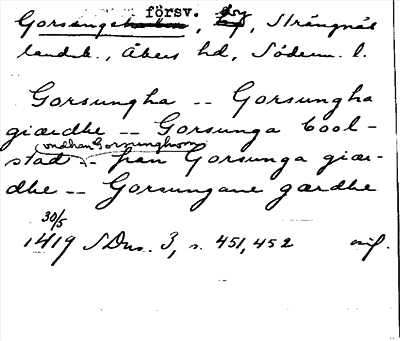 försv.
Gorsunge, Strängnäs
landsk., Åkers hd, Söderm. l.
Gorsungha -- Gorsungha
giærdhe -- Gorsunga bool-
ondhan Gorsunghom
stad -- fran Gorsunga giær-
dhe -- Gorsungane gærdhe
30/5
1419 SDns. 3, s. 451, 452